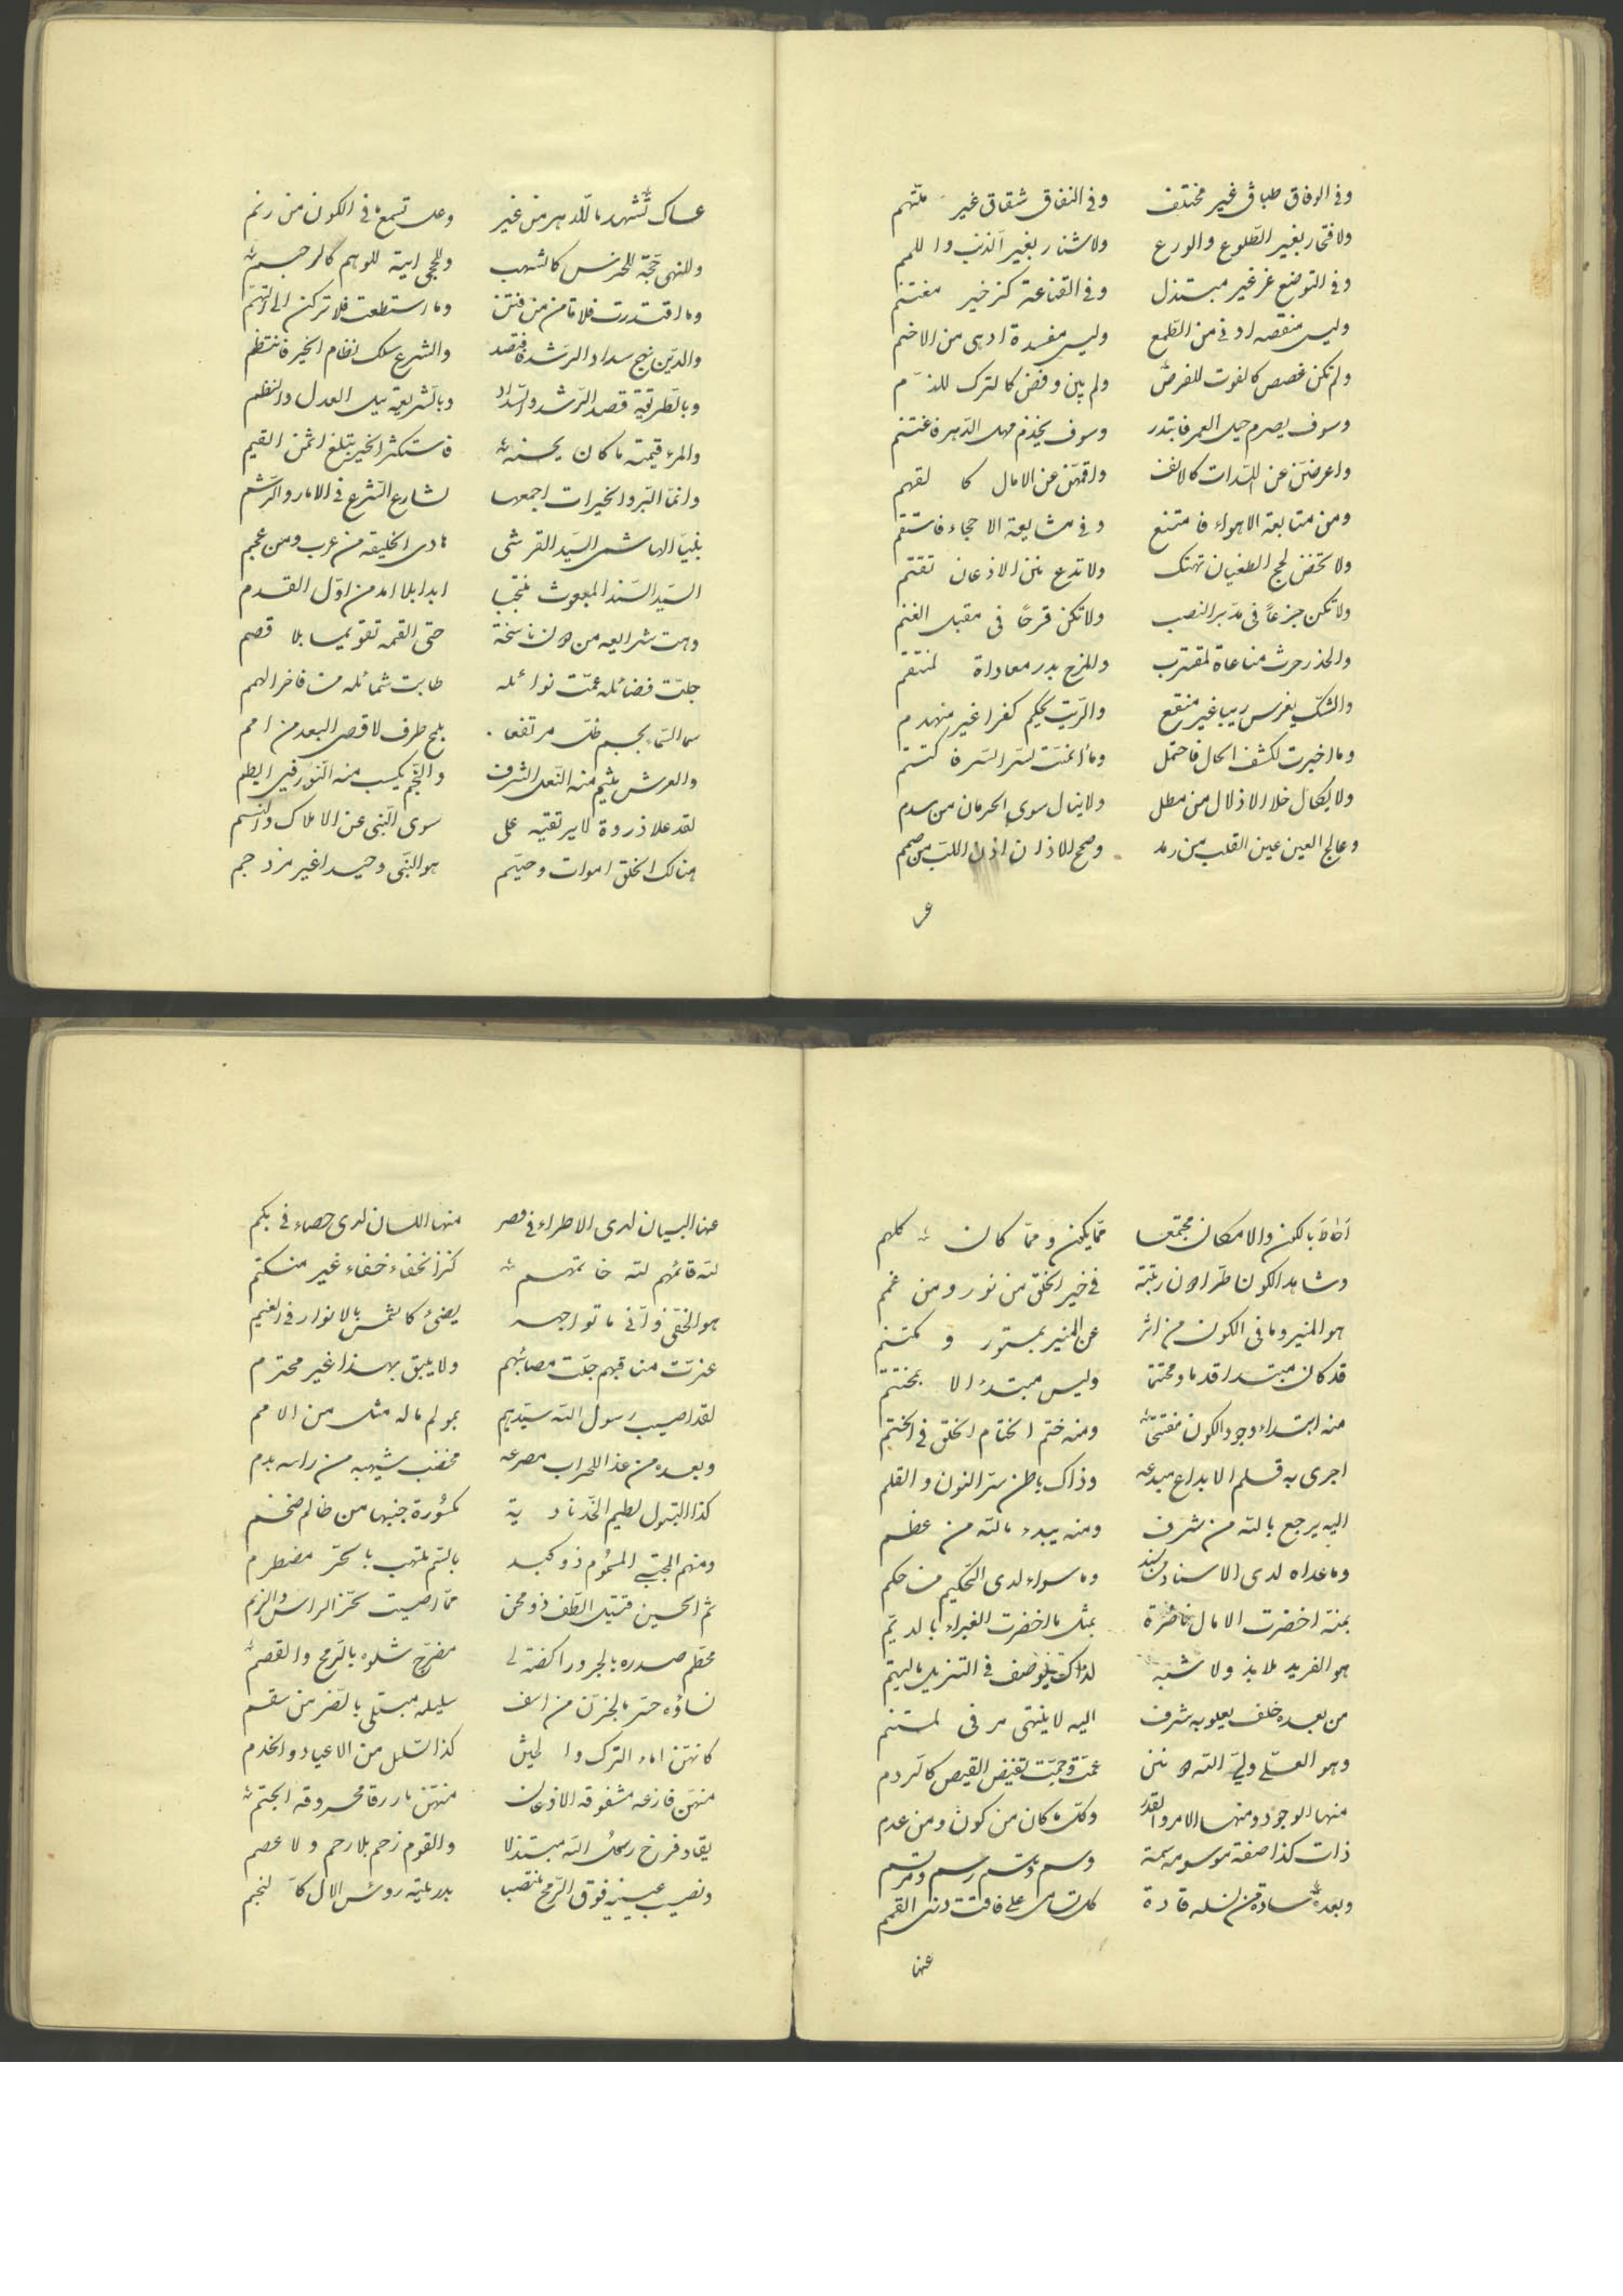 وفی الوفاق طباق غیر مختلف وفی النفاق شقاق غیر ملتهم
ولا فخار بغیر الطلوع والورع ولا شنار بغیر الذنب واللمم
وفی التوضع عز غیر مبتذل وفی القناعة کنز خیر مغتنم
ولیس منقصه ادنی من الطمع ولیس مفسدة ادهی من الاضم
ولم تکن غصص کالفوت للفرص ولم یبن وفض کالترک للذمم
وسوف یصرم حبل العمر فابتدر وسوف یخذم مهل الدهر فاغتنم
واعرضن عن اللذات کالانف واقمهن عن الامال کا لقهم
ومن متابعة الاهواء فامتنع وفی مشایعة الاحجاء فاستقم
ولا تخض لجج الطغیان تهتک ولا تدع سنن الاذعان تقتم
ولا تکن جزعاً فی مدبر النصب ولا تکن فرحاً فی مقبل الغنم
والحذر حرث مناعاة لمقترب وللمزح بدر معاداة لمنتقم
والشک یغرس ریبا غیر منقع والریب یحکم کفرا غیر منهدم
وما اخبرت لکشف الحال فاحتمل وما ائمنت لستر السر فاکتتم
ولا یکال خلا الاذلال من مطل ولا ینال سوی الحرمان من سدم
وعالج العین عین القلب من رمد وصحح للاذان اذان اللب من صمم
عس
عساک تشهد ما للدهر من غیر وعل تسمع ما فی الکون من رنم
وللنهی حجة للحدس کالشهب وللحجی ایة للوهم کالرجم
وما اقتدرت فلا تامن من فتن وما استطعت فلا ترکن الی التهم
والدین نهج سداد الرشد فاقتصد والشرع سلک نظام الخیر فانتظم
وبالطریقة قصد الرشد والسداد وبالشریعة نیل العدل والنظم
والمرء قیمته ما کان یحسنه فاستکثر الخیر تبتلغ اثمن القیم
وانما البر والخیرات اجمعها لشارع الشرع فی الاثار والرشم
نبینا الهاشمی السید القرشی هادی الخلیقة من عرب ومن عجم
السید السند المبعوث منتجبا ابدا بلا امد من اول القدم
وهت شرایعه من کان ناسخة حتی القمه تقویما بلا قصم
جلت فضائله عمت نوائله طابت شمائله من فاخر الهمم
سما السماء بجسم ظل مرتفعا بلمح طرف لاقصی البعد من امم
والعرش یلثم منه النعل للشرف والنجم یکسب منه النور فی الظلم
لقد علا ذروة لا یرتقیه علی سوی النبی عن الاملاک والنسم
هنالک الخلق اموات وحیهم هو النبی وحیدا غیر مزدحم
احاط بالکون والامکان مجتمعا مما یکون ومما کان کلهم
وشاهد الکون طرا کان رتبته فی خیر الخلق من نور ومن غمم
هو المنیر وما فی الکون من اثر عن المنیر بمستور و مکتتم
قد کان مبتدا قدما ومختتما ولیس مبتدء الا بمختتم
منه ابتداء وجود الکون مفتتح ومنه ختم اختتام الخلق فی الختم
اجری به قلم الابداع مبدعه وذاک باطن سر النون والقلم
الیه یرجع بالله من شرف ومنه یبدء مالله من عظم
وما عداه لدی الاسناد مستند وما سواه لدی التحکیم من حکم
بمنه اخضرت الامال ناضرة بمثل ما اخضرت الغبراء بالدیم
هو الفرید بلا ند ولا شبه لذاک یوصف فی التنزیل بالیتم
من بعده خلف یعلو به شرف الیه لا ینتهی مرقی لمستنم
وهو العلی ولی الله
منها الوجود ومنها الامر والقدر وکل ما کان من کون ومن عدم
ذات کذا صفة موسومه سمة وسم رسم
وبعده سادة من نسله قادة کل تسامی علی فاقت ذری القمم
عنها
عنها البیان لدی الاطراء فی قصر منها اللسان لدی حصاء فی بکم
لله قائمهم لله خاتمهم کنز الخفاء خفاء غیر منکتم
هو الخفی وانی ما تواجهه یضیء کالشمس بالانوار فی الغیم
عزت مناقبهم جلت مصائبهم ولا یلیق بهذا غیر محترم
لقد اصیب رسول الله سیدهم بمولم ماله مثل من الامم
وبعده من غدا المحراب مصرعه مخضب شیبه من راسه بدم
کذا البتول لطیم الخد نادیة مکسورة جنبها من ظالم ضخم
ومنهم المجتبی المسموم ذو کبد بالسم ملتهب بالحر مضطرم
ثم الحسین قتیل الطف ذو محن مما اصیبت بحز الراس والزنم
محطم صدره بالجرد راکضة مضرج شلوه بالرمح والقصم
نساؤه حسر بالحزن من اسف سلیله مبتلی بالضر من سقم
کانهن اماء الترک والحبش کذا السلیل من الاعباد والخدم
منهن فازعه مشقوقة الاذعان منهن ما ررقا محروقة الختم
یقاد فرخ رسول الله مبتذلا والقوم زحم بلا رحم ولا عصم
ونصب عینیه فوق الرمح منتصبا بدر علیه روس الال کالنجم